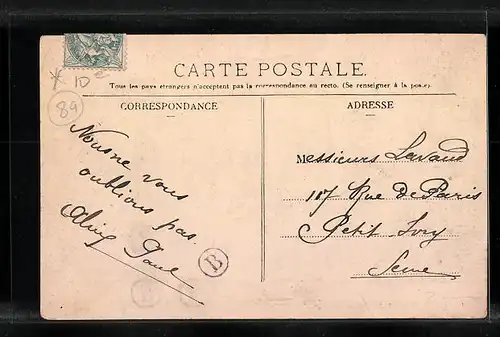 * 10 e
89
CARTE POSTALE.
Tous les pays étrangers n'acceptent pas la correspondance au recto. (Se renseigner à la poste).
CORRESPONDANCE
ADRESSE
Nous ne vous
oublions pas
Paul
B
Messieurs Lavaud
107 Rue De Paris
Petit Ivry
Seine